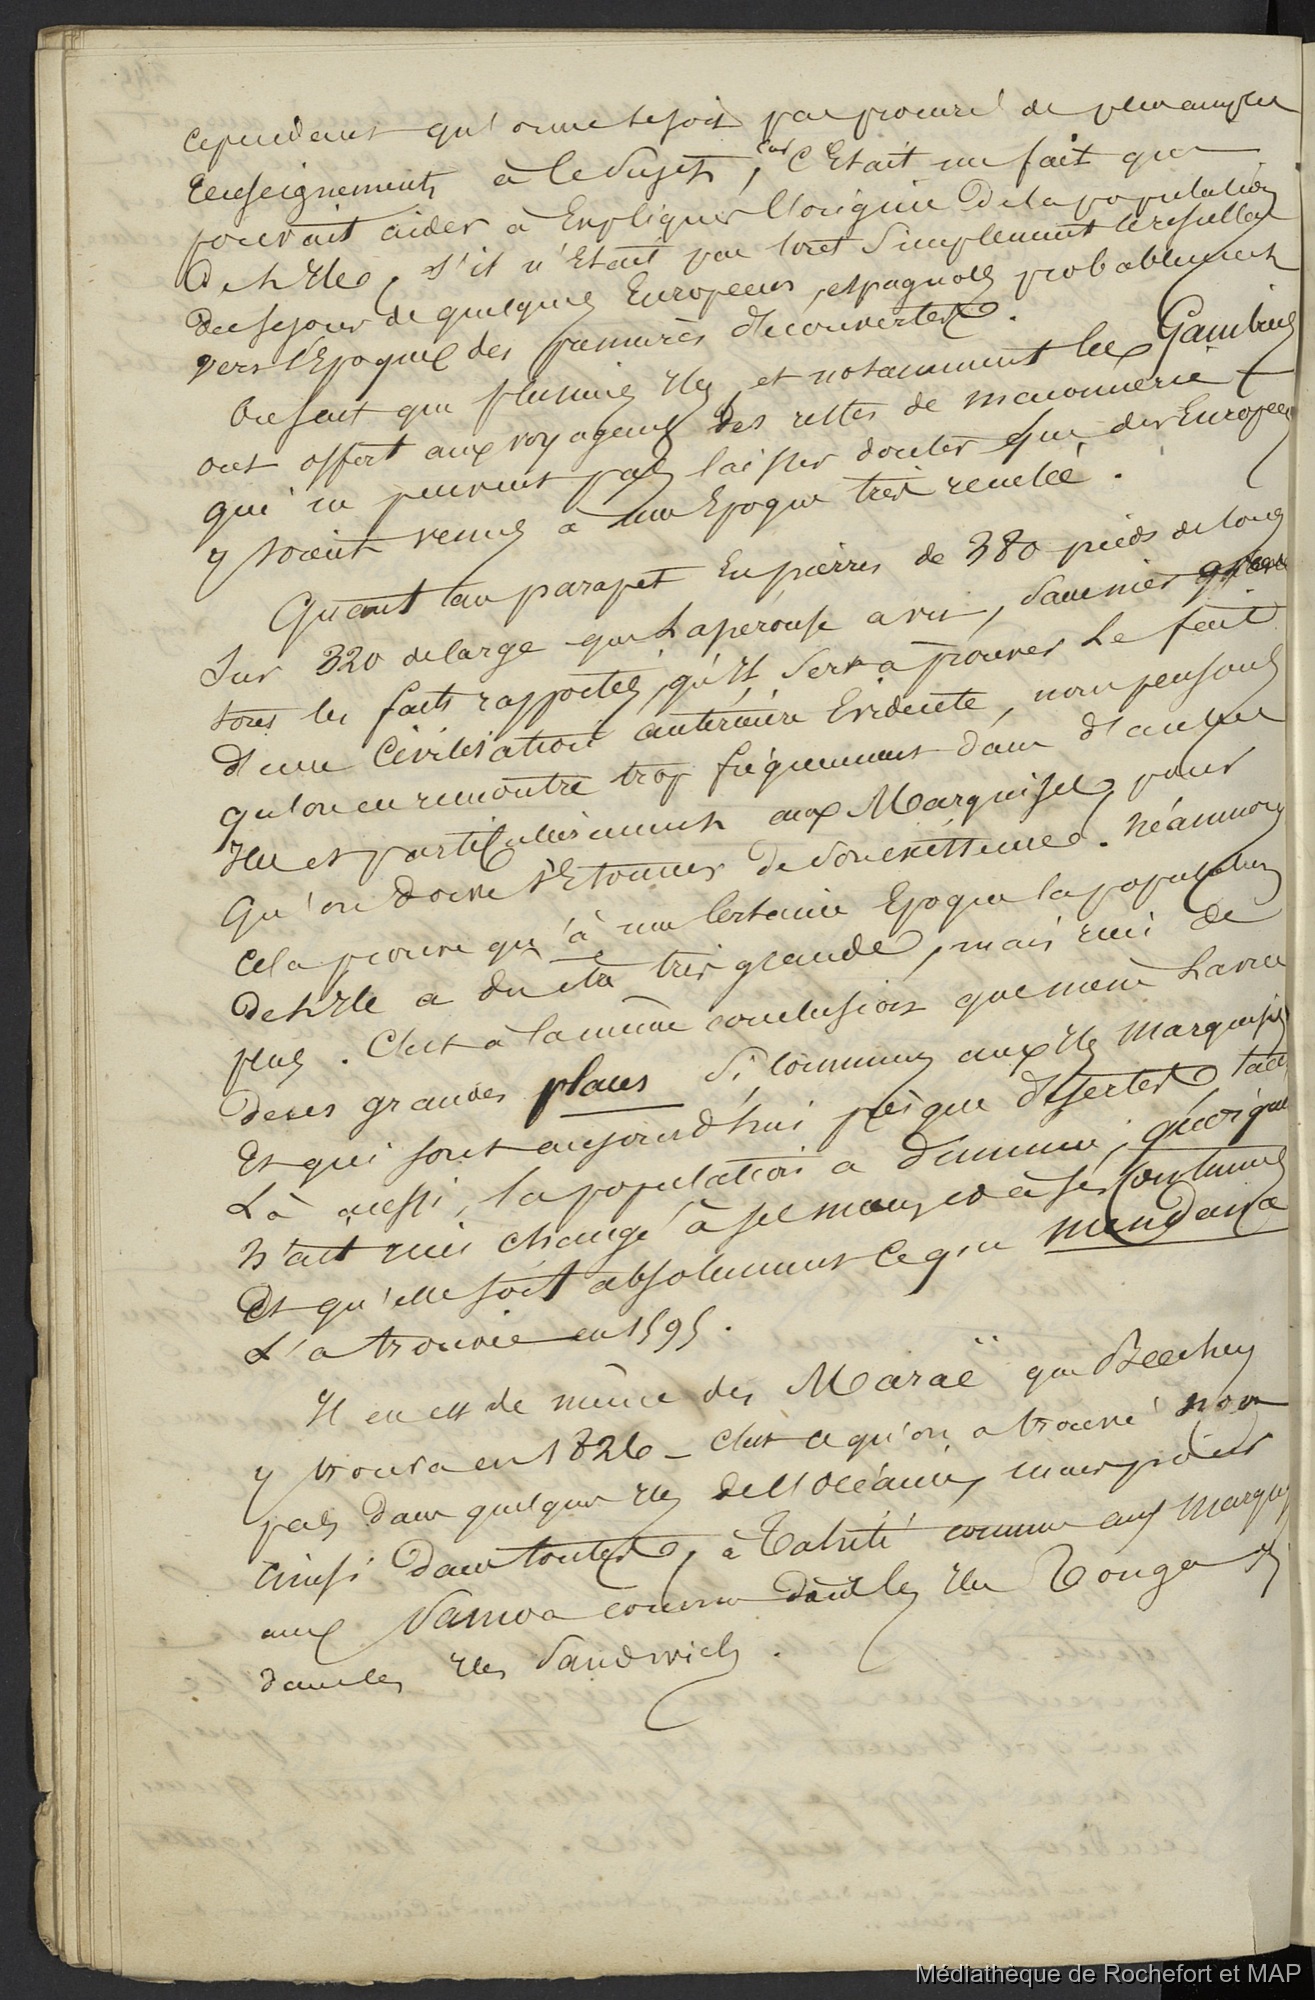 cependant qu'on ne se soit pas procuré de plus amples
renseignements à ce sujet, car c'était un fait qui
pouvait aider à expliquer l'origine de la population
de l'île, s'il n'était pas tout simplement le résultat
du séjour de quelques Européens, espagnols probablement
vers l'époque des premières découvertes.
Le fait que plusieurs îles, et notamment les Gambier
ont offert aux voyageurs des restes de maçonnerie
qui ne peuvent pas laisser douter que des Européens
y soient venus à une époque très reculée.
Quant au parapet en pierres de 380 pieds de long
sur 320 de large que Lapérouse a vu, sans nier
tous les faits rapportés, qu'il sert à prouver le fait
d'une civilisation antérieure évidente, nous pensons
qu'on en rencontre trop fréquemment dans d'autres
îles et particulièrement aux Marquises, pour
qu'on doive s'étonner de son existence. Néanmoins
cela prouve qu'à une certaine époque la population
de l'île a du être très grande, mais rien de
plus. C'est à la même conclusion que mène la vue
de ces grandes places si communes aux îles Marquises
et qui sont aujourd'hui presque désertes,
Là aussi, la population a diminué, quoique
n'ait rien changé à ses mœurs et à ses coutumes
et qu'elle soit absolument ce que Mendana
l'a trouvée en 1595.
Il en est de même des Maraë que Beechey
y trouva en 1826 - c'est ce qu'on a trouvé non
pas dans quelques îles de l'Océanie, mais presque
dans toutes, à Tahiti comme aux Marquises
aux Samoa comme dans les îles Tonga et
dans les îles Sandwich.
Médiathèque de Rochefort et MAP